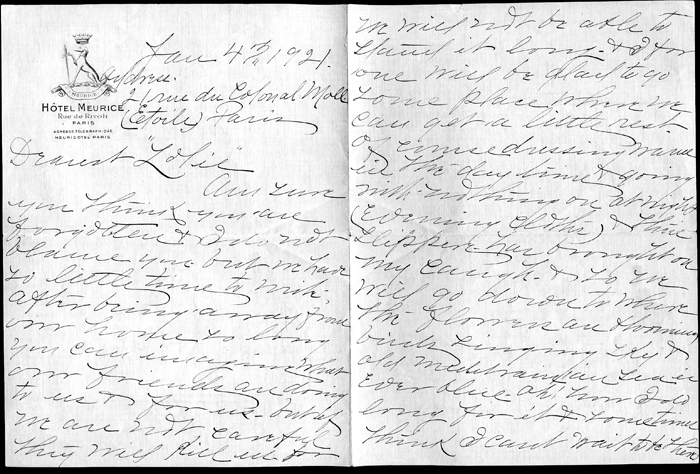 Jan 4th, 1921.
Address.
21 rue du Colonel Moll
(Etoile) Paris
MEURICE
HÔTEL MEURICE
Rue de Rivoli
PARIS
ADRESSE TÉLÉGRAPHIQUE
MEURISOTEL PARIS
Dearest "Lolie"
Am sure
you think you are
forgotten & I do not
blame you but we have
so little time to write.
After being away from
our home so long
you can imagine what
our friends are doing
to us & for us - but if
we are not careful
they will kill us for
we will not be able to
stand it long - & I for
one will be glad to go
some place where we
can get a little rest.
Of course dressing warm
in the day time & going
with nothing on at night
(evening clothes) & thin
slippers has brought on
my cough - & so we
will go down to where
the flowers are blooming
birds singing sky &
old Mediterranean sea is
ever blue Oh, how I do
long for it & sometimes
think I can't wait to